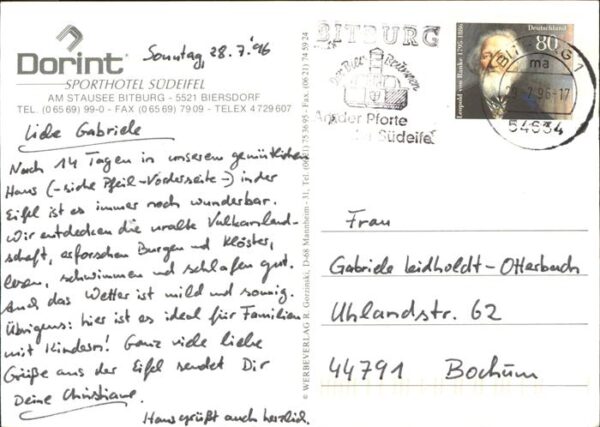 Dorint
SPORTHOTEL SÜDEIFEL
AM STAUSEE BITBURG - 5521 BIERSDORF
TEL. (0 65 69) 99-0 - FAX (0 65 69) 79 09 - TELEX 4 729 607
Sonntag, 28.7.'96
Liebe Gabriele
Nach 14 Tagen in unserem gemütlichen
Haus (-siehe Pfeil-Vorderseite-) in der
Eifel ist es immer noch wunderbar.
Wir entdecken die uralte Vulkanland-
schaft, erforschen Burgen und Klöster,
lesen, schwimmen und schlafen gut.
Auch das Wetter ist mild und sonnig.
Übrigens: hier ist es ideal für Familien
mit Kindern! Ganz viele liebe
Grüße aus der Eifel sendet Dir
Deine Christiane.
Hans grüßt auch herzlich.
© WERBEVERLAG R. Gorzinski, D-68 Mannheim - 31, Tel. (06 21) 75 36 95 - Fax. (06 21) 74 59 24
BITBURG
An der Pforte
Südeifel
Deutschland
80
Leopold von Ranke 1795-1886
ma
-7.96-17
54634
Frau
Gabriele Leidholdt-Otterbach
Uhlandstr. 62
44791 Bochum